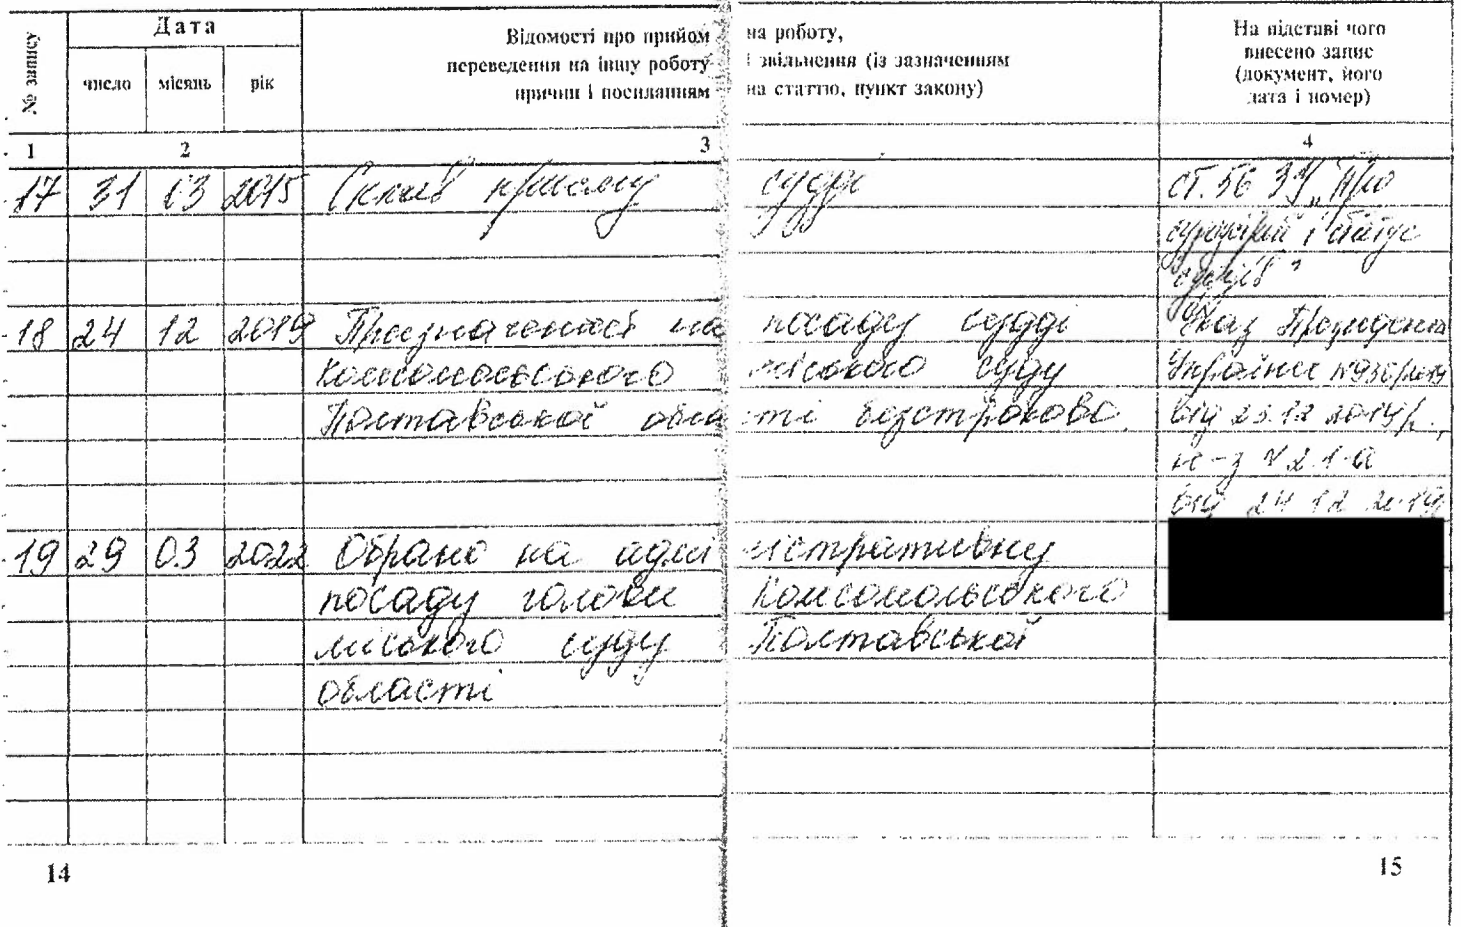 № запису
Дата
число місяць рік
Відомості про прийом на роботу,
переведення на іншу роботу і звільнення (із зазначенням
причин і посиланням на статтю, пункт закону)
На підставі чого
внесено запис
(документ, його
дата і номер)
1 2 3 4
17 31 03 2015 Склав присягу судді ст. 56 ЗУ „Про
судоустрій і статус
суддів"
18 24 12 2019 Призначений на посаду судді Указ Президента
Комсомольського міського суду України №936/2019
Полтавської області безстроково. від 23.12.2019р.,
н-з №2.1-а
від 24 12 2019
19 29 03 2022 Обрано на адміністративну
посаду голови Комсомольського
міського суду Полтавської
області
14
15